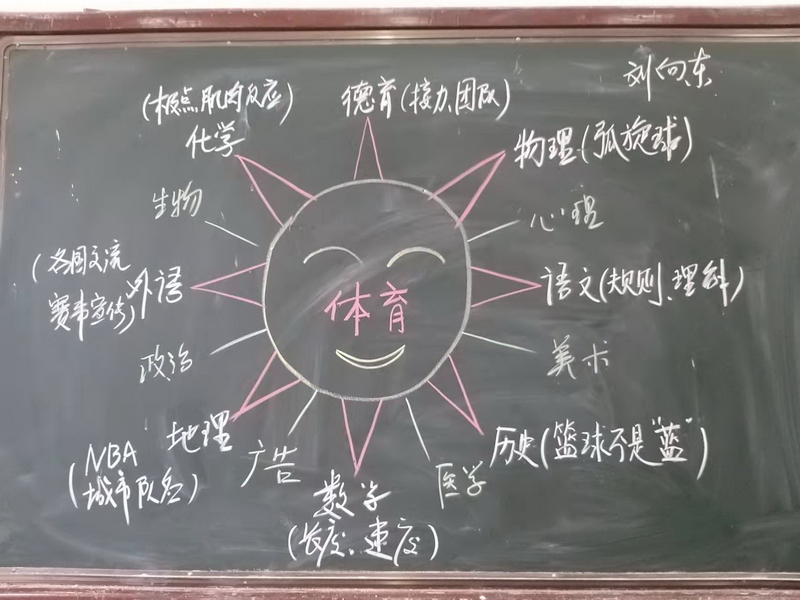 刘向东
(极点,肌肉反应)
德育(接力,团队)
化学
物理(弧旋球)
生物
心理
(各国交流
赛事宣传)
外语
体育
语文(规则、理解)
政治
美术
地理
(NBA
城市队名)
广告
历史(篮球不是"蓝")
医学
数学
(长度、速度)